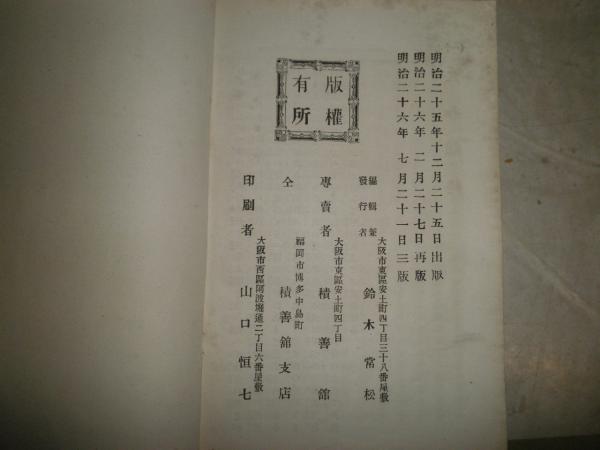 明治二十五年十二月二十五日出版
明治二十六年二月二十七日再版
明治二十六年七月二十一日三版
版權
有所
編輯兼
發行者
大阪市東區安土町四丁目三十八番屋敷
鈴木常松
專賣者
大阪市東區安土町四丁目
積善舘
仝
福岡市博多中島町
積善舘支店
印刷者
大阪市西區阿波堀通二丁目六番屋敷
山口恒七